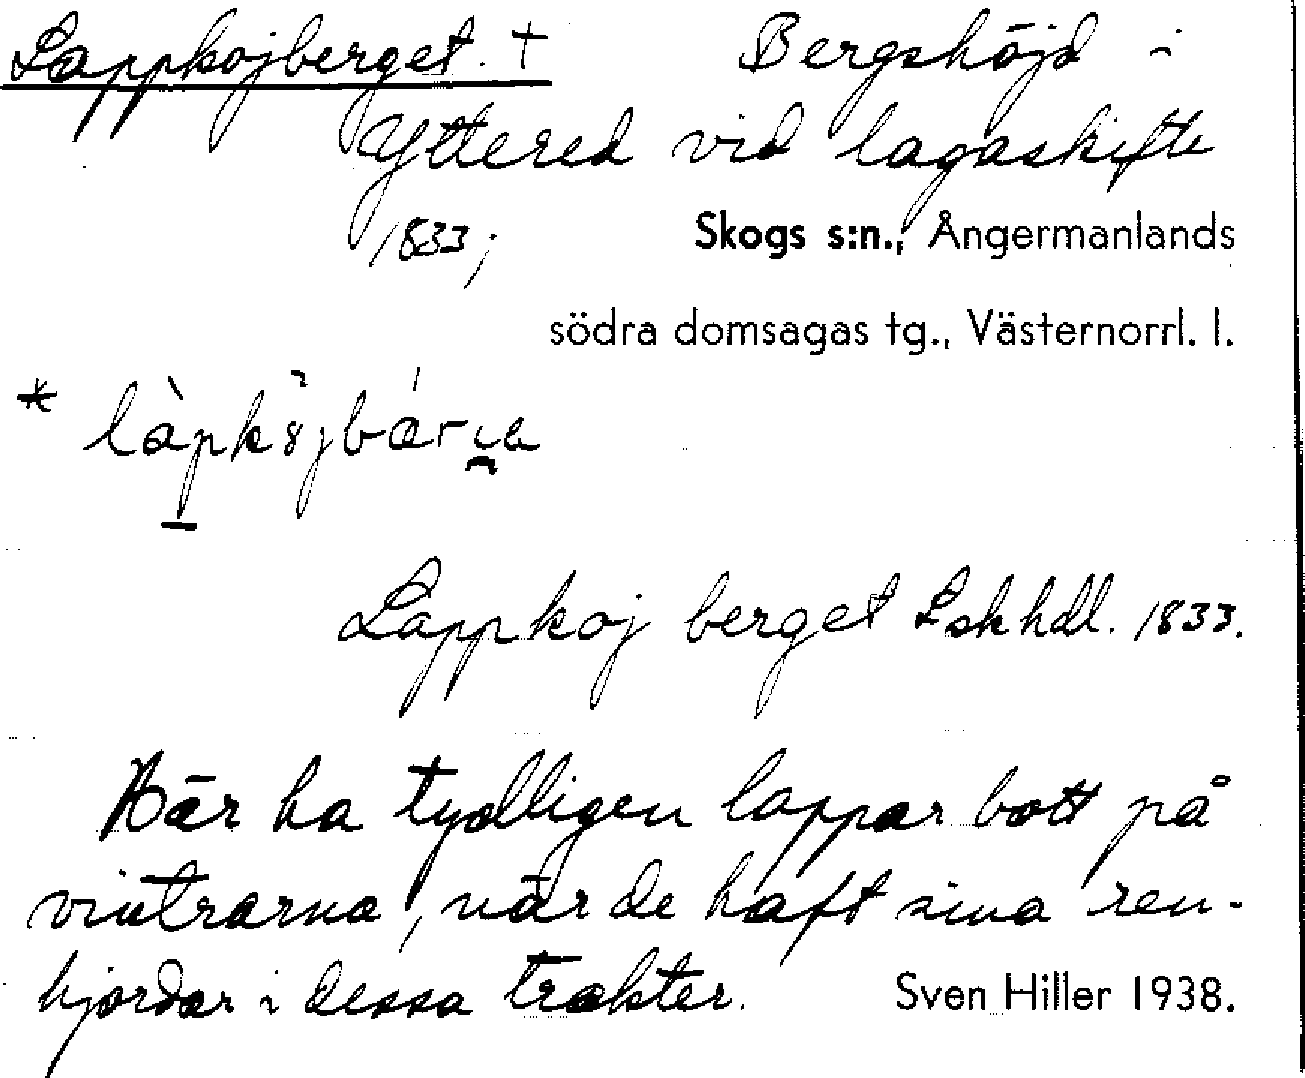 Lappkojberget. † Bergshöjd i
Yttered vid lagaskifte
1833; Skogs s:n., Ångermanlands
södra domsagas tg., Västernorrl. l.
Lappkoj berget Lskhdl. 1833.
Här ha tydligen lappar bott på
vintrarna, när de haft sina ren-
hjordar i dessa trakter. Sven Hiller 1938.